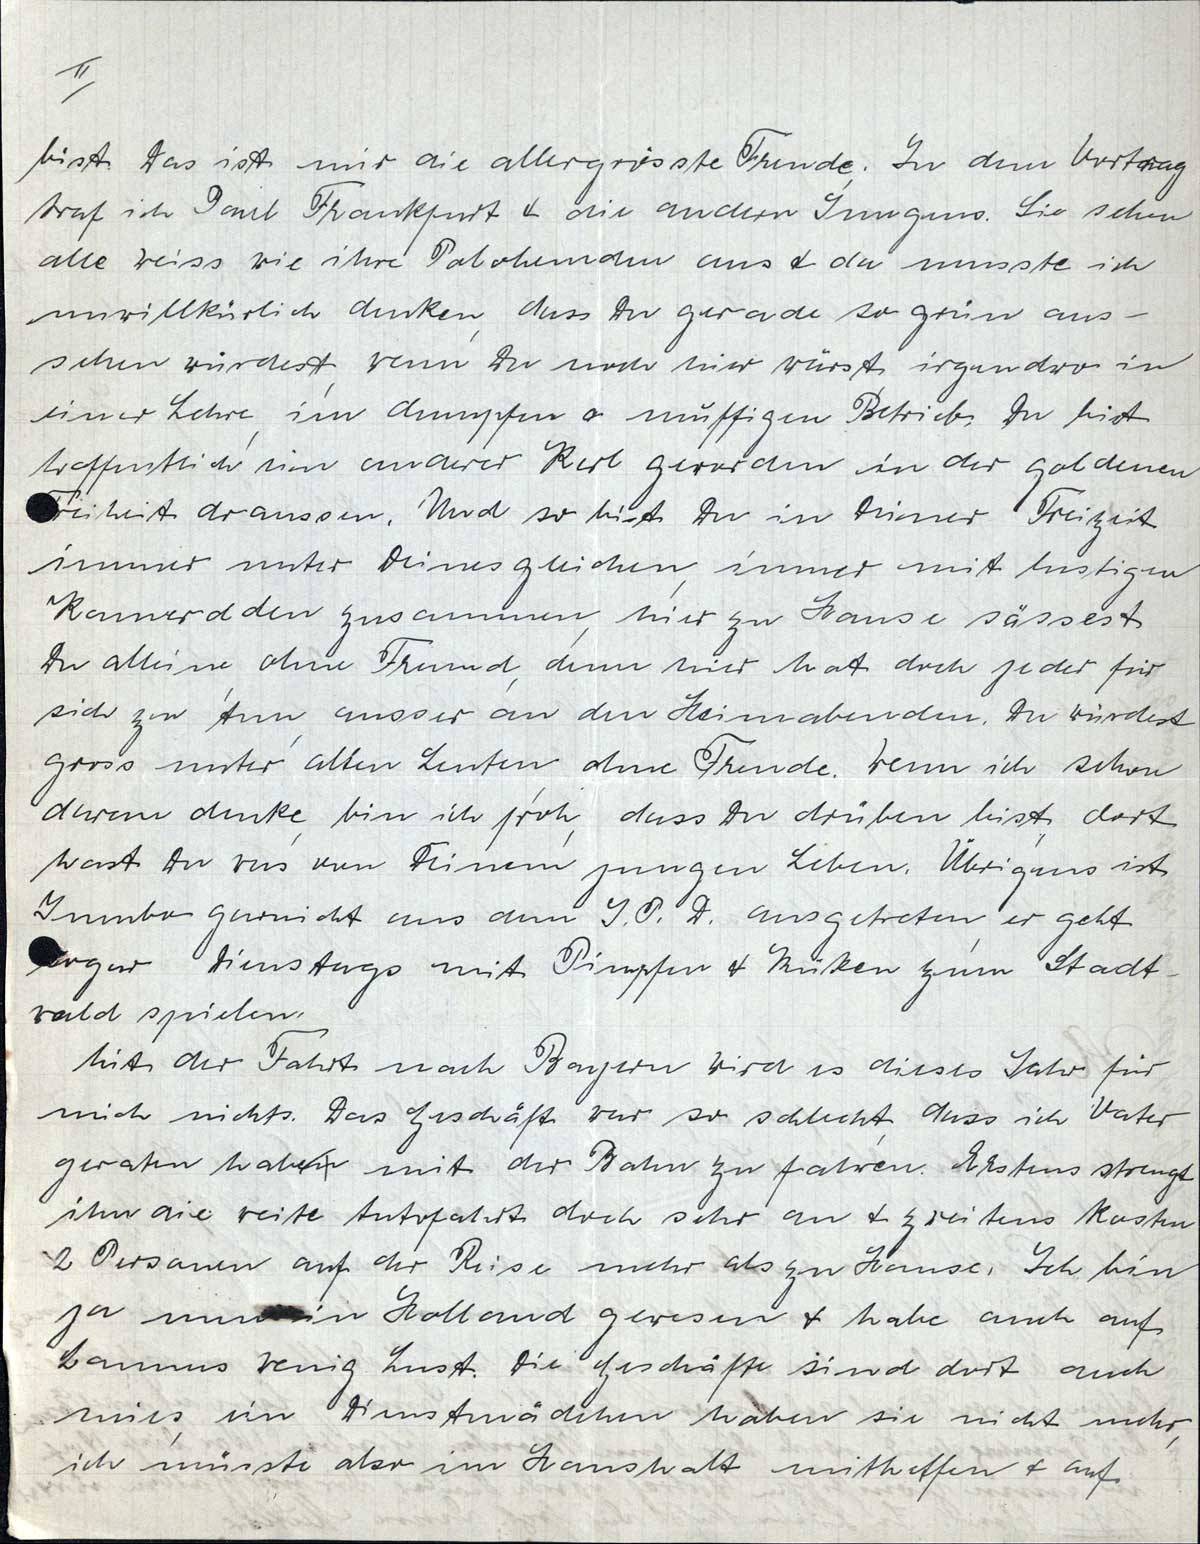 II
bist. Das ist mir die allergrösste Freude. In dem Vortrag
traf ich Paul Frankfurt & die andern Jungens. Sie sehen
alle weiss wie ihre Polohemden aus & da musste ich
unwillkürlich denken, dass Du gerade so grün aus-
sehen würdest, wenn Du noch hier wärst, irgendwo in
einer Lehre, im dumpfen o muffigen Betrieb. Du bist
hoffentlich ein anderer Kerl geworden in der goldenen
Freiheit draussen. Und so bist Du in Deiner Freizeit
immer unter Deinesgleichen, immer mit lustigen
Kamerdden zusammen, hier zu Hause sässest
Du alleine ohne Freund, denn hier hat doch jeder für
sich zu tun, ausser an den Heimabenden. Du würdest
gross unter alten Leuten ohne Freude. Wenn ich schon
daran denke, bin ich froh, dass Du drüben bist, dort
hast Du was von Deinem jungen Leben. Übrigens ist
Jumbo garnicht aus dem J.P.D. ausgetreten, er geht
sogar Dienstags mit Pimpfen & Küken zum Stadt-
wald spielen.
Mit der Fahrt nach Bayern wird es dieses Jahr für
mich nichts. Das Geschäft war so schlecht, dass ich Vater
geraten habe mit der Bahn zu fahren. Erstens strengt
ihn die weite Autofahrt doch sehr an & zweitens kosten
2 Personen auf der Reise mehr als zu Hause. Ich bin
ja nun in Holland gewesen & habe auch auf
Lammus wenig Lust. Die Geschäfte sind dort auch
mies, ein Dienstmädchen haben sie nicht mehr,
ich müsste also im Haushalt mithelfen & auf